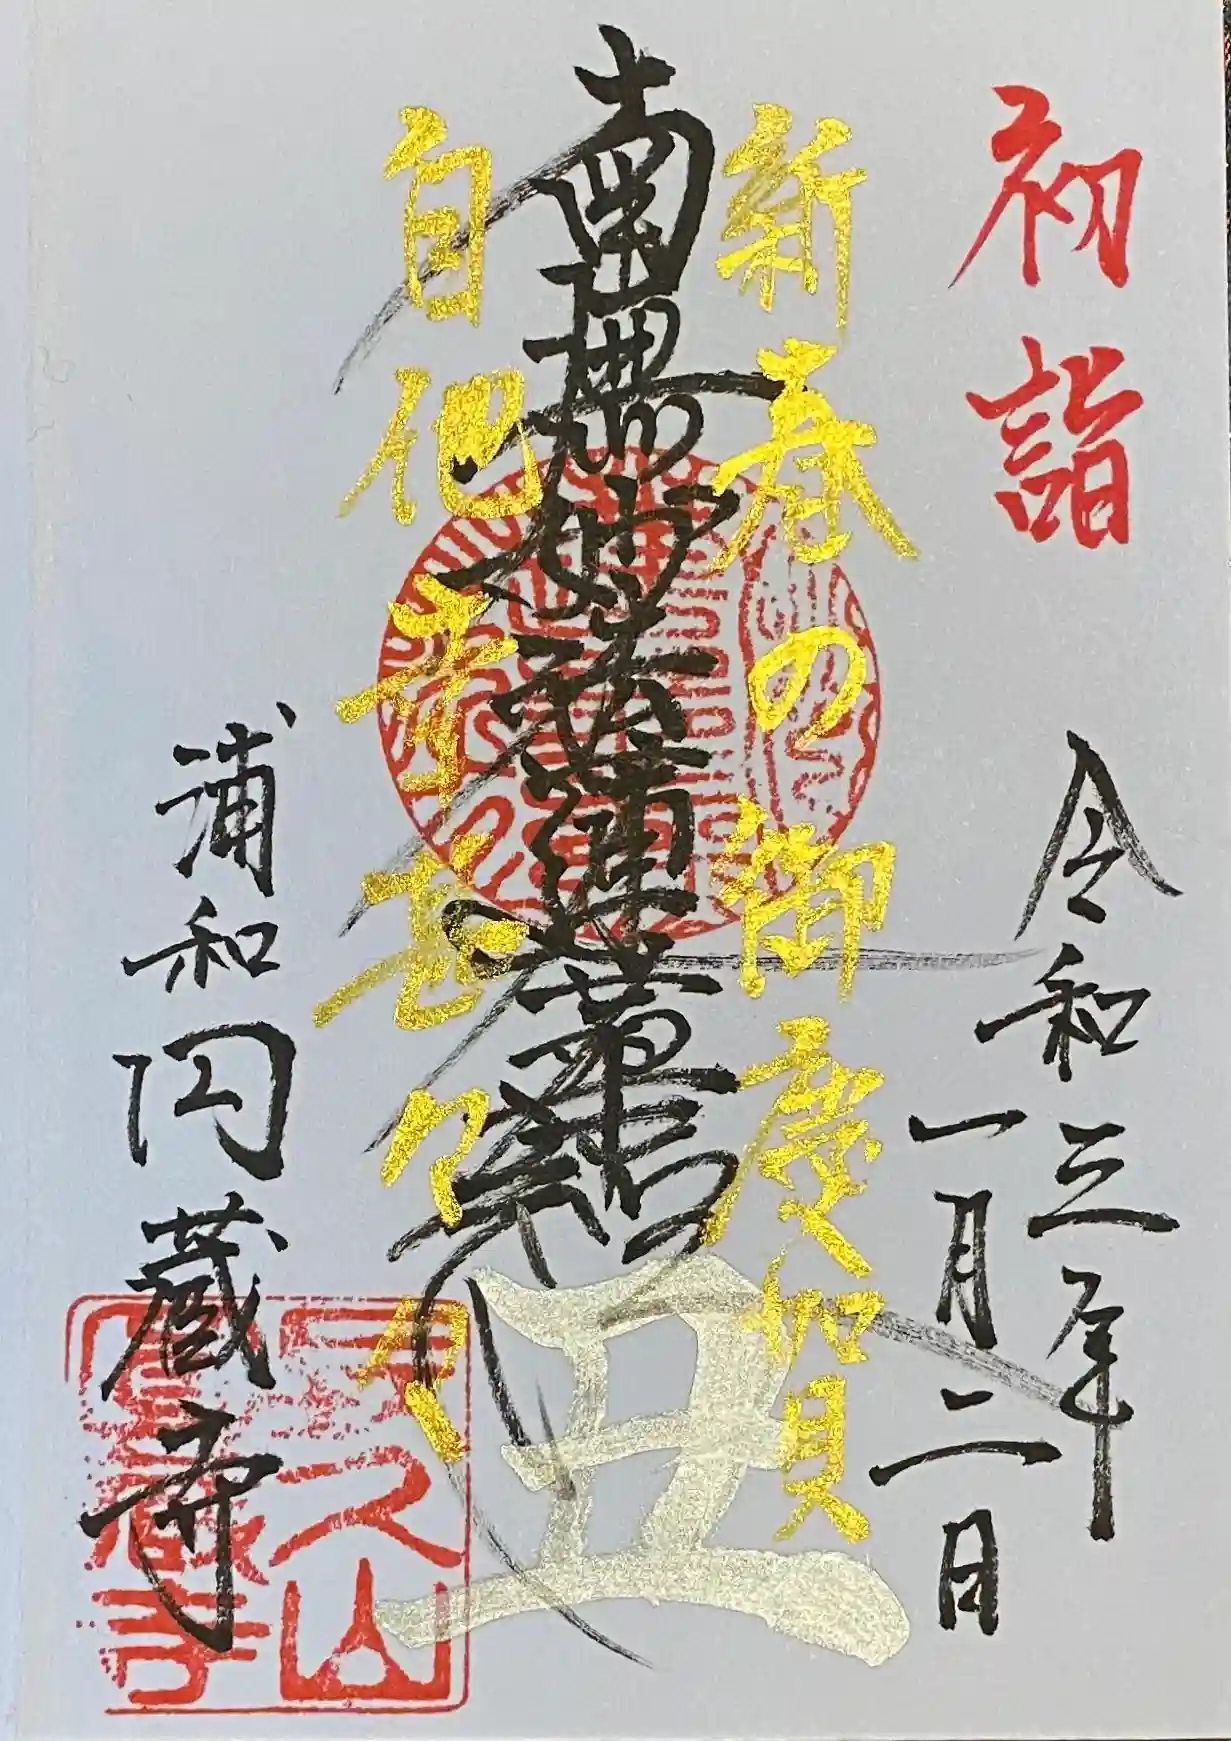 初詣
令和三年
一月二日
新春の御慶賀
南無妙法蓮華経
自他幸甚々々
丑
浦和円蔵寺